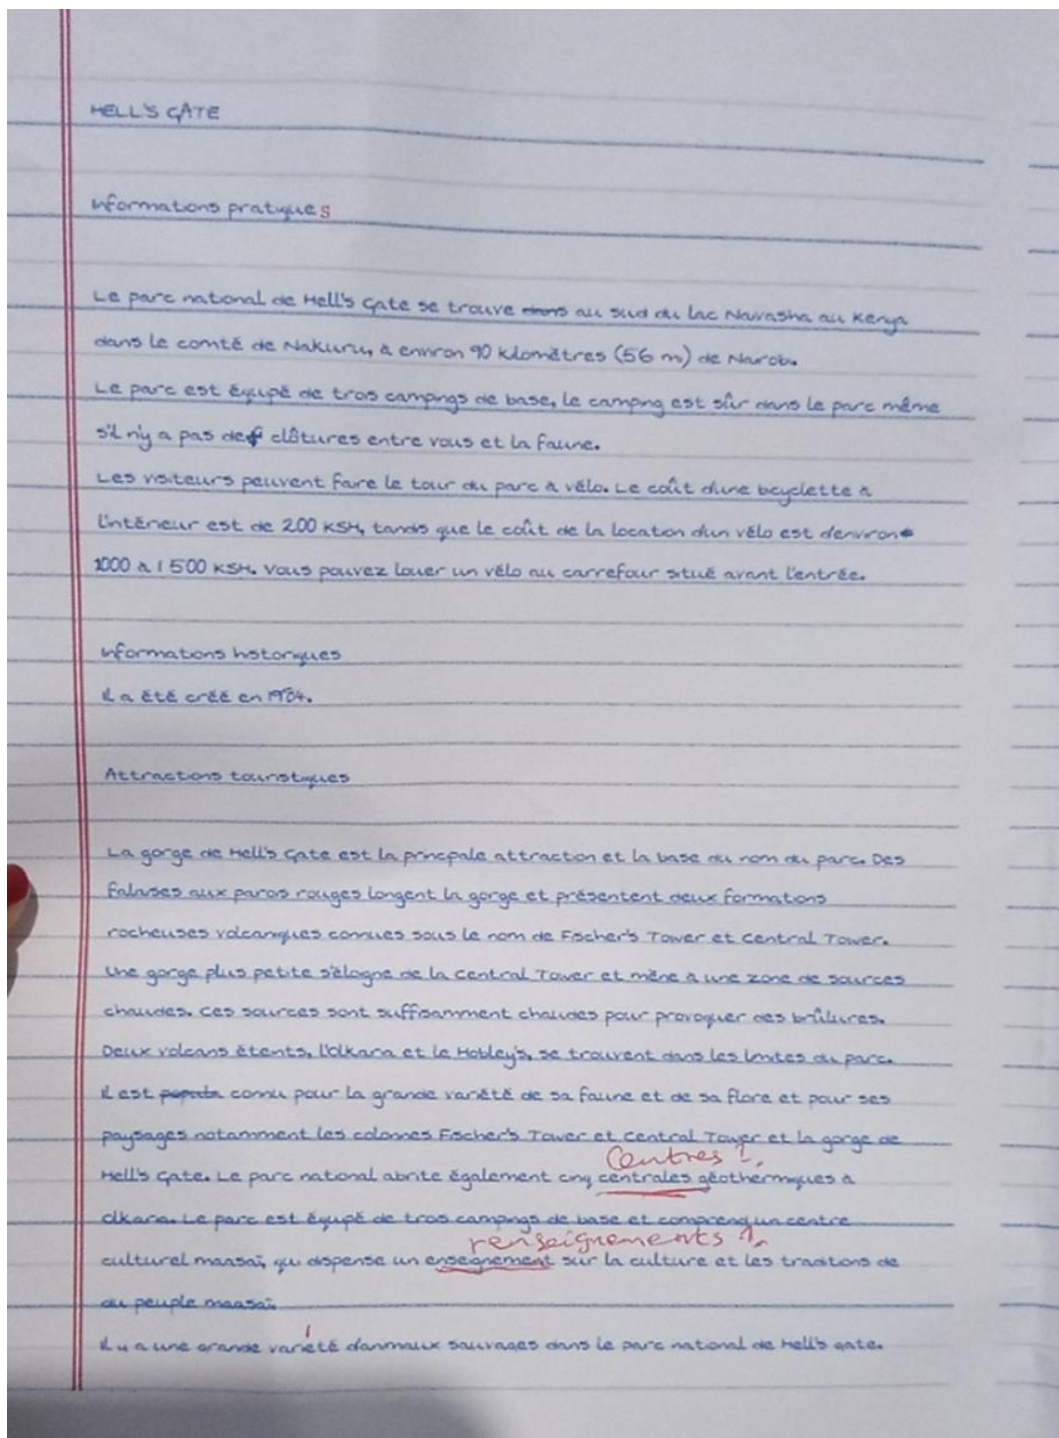 HELL'S GATE
Informations pratiques
Le parc national de Hell's Gate se trouve dans au sud du lac Naivasha au Kenya
dans le comté de Nakuru, à environ 90 kilomètres (56 mi) de Nairobi.
Le parc est équipé de trois campings de base, le camping est sûr dans le parc même
s'il n'y a pas de clôtures entre vous et la faune.
Les visiteurs peuvent faire le tour du parc à vélo. Le coût d'une bicyclette à
l'intérieur est de 200 KSH, tandis que le coût de la location d'un vélo est d'environ
1000 à 1 500 KSH. Vous pouvez louer un vélo au carrefour situé avant l'entrée.
Informations historiques
Il a été créé en 1984.
Attractions touristiques
La gorge de Hell's Gate est la principale attraction et la base du nom du parc. Des
falaises aux parois rouges longent la gorge et présentent deux formations
rocheuses volcaniques connues sous le nom de Fischer's Tower et Central Tower.
Une gorge plus petite s'éloigne de la Central Tower et mène à une zone de sources
chaudes. Ces sources sont suffisamment chaudes pour provoquer des brûlures.
Deux volcans éteints, l'Olkaria et le Hobley's, se trouvent dans les limites du parc.
Il est connu pour la grande variété de sa faune et de sa flore et pour ses
paysages notamment les colonnes Fischer's Tower et Central Tower et la gorge de
Centres !
Hell's Gate. Le parc national abrite également cinq centrales géothermiques à
Olkaria. Le parc est équipé de trois campings de base et comprend un centre
renseignements
culturel maasaï, qui dispense un enseignement sur la culture et les traditions de
du peuple maasaï.
Il y a une grande variété d'animaux sauvages dans le parc national de Hell's gate.